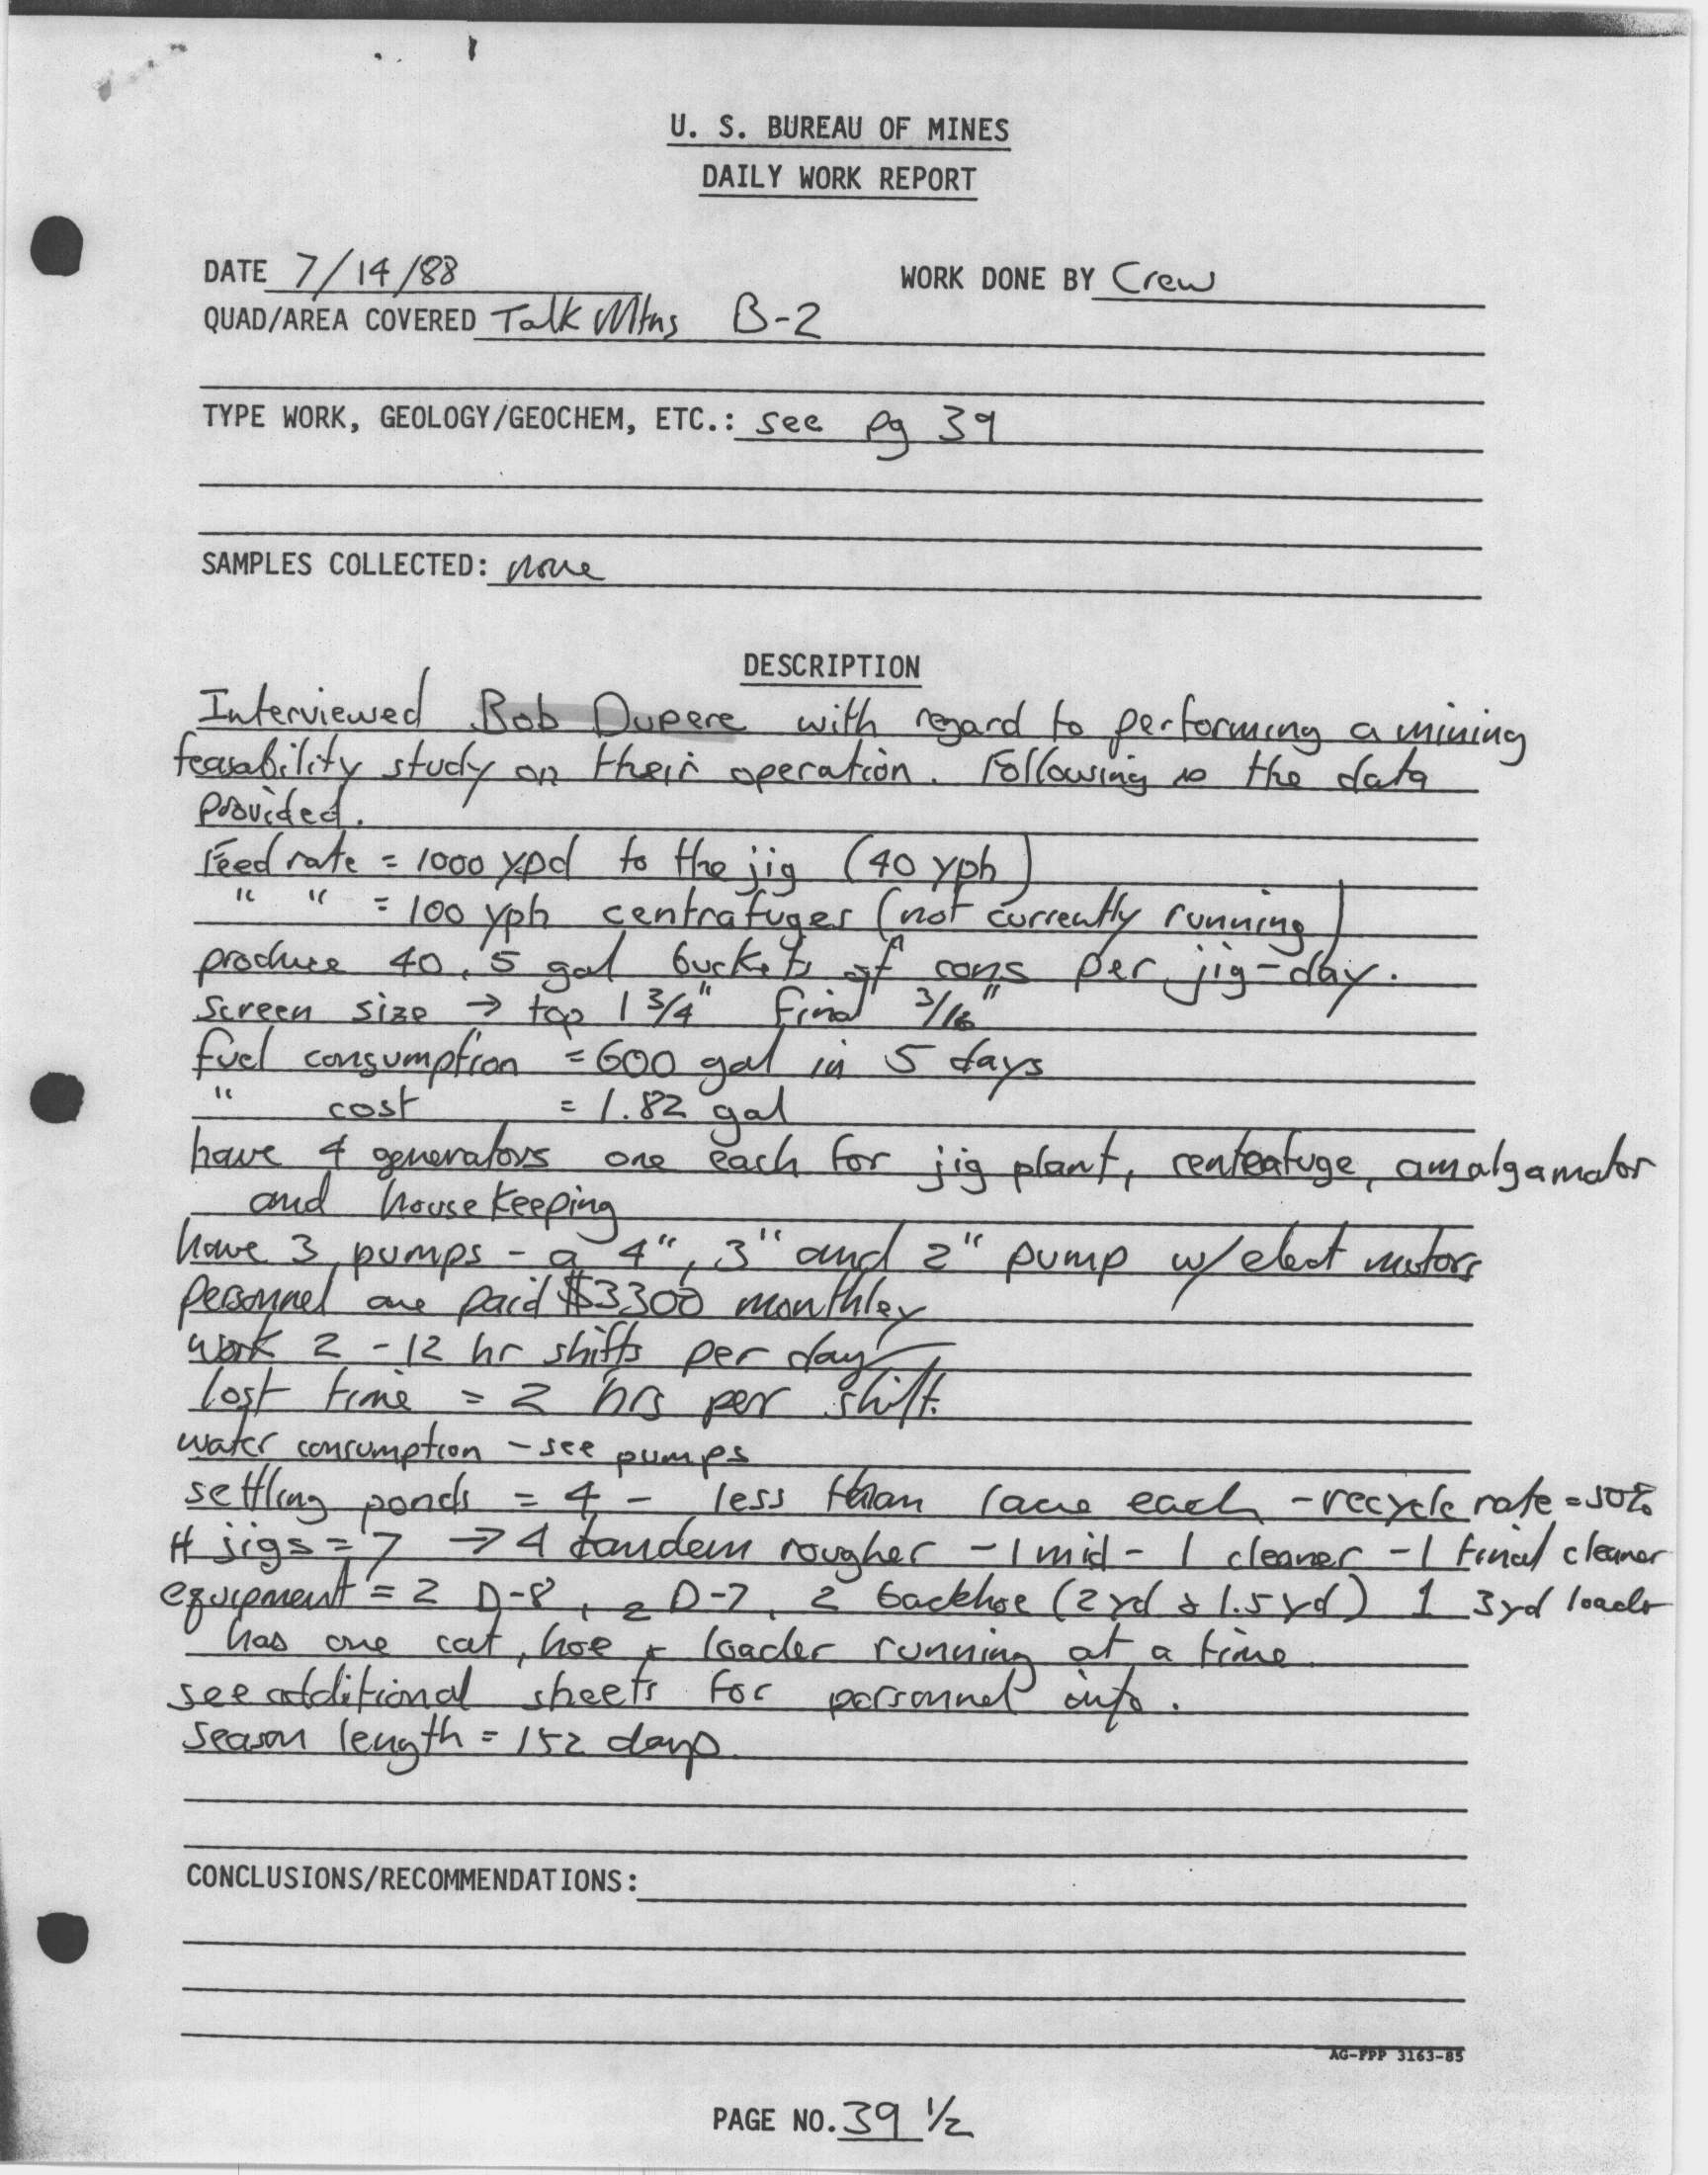 U. S. BUREAU OF MINES
DAILY WORK REPORT
DATE 7/14/88 WORK DONE BY Crew
QUAD/AREA COVERED Talk Mtns B-2
TYPE WORK, GEOLOGY/GEOCHEM, ETC.: see pg 39
SAMPLES COLLECTED: none
DESCRIPTION
Interviewed Bob Dupere with regard to performing a mining
feasability study on their operation. Following is the data
provided.
Feed rate = 1000 ypd to the jig (40 yph)
" " = 100 yph centrafuges (not currently running)
produce 40, 5 gal buckets of cons per jig-day.
screen size → top 1 3/4" final 3/16"
fuel consumption = 600 gal in 5 days
" cost = 1.82 gal
have 4 generators one each for jig plant, centrafuge, amalgamator
and housekeeping
have 3 pumps - a 4", 3" and 2" pump w/ elect motors
personnel are paid $3300 monthley
work 2 - 12 hr shifts per day
lost time = 2 hrs per shift.
water consumption - see pumps
settling ponds = 4 - less than 1 acre each - recycle rate = 50%
# jigs = 7 → 4 tandem rougher - 1 mid - 1 cleaner - 1 final cleaner
equipment = 2 D-8, 2 D-7, 2 backhoe (2 yd & 1.5 yd) 1 3yd loader
has one cat, hoe & loader running at a time
see additional sheets for personnel info.
season length = 152 days
CONCLUSIONS/RECOMMENDATIONS:
AG-FPP 3163-85
PAGE NO. 39 1/2